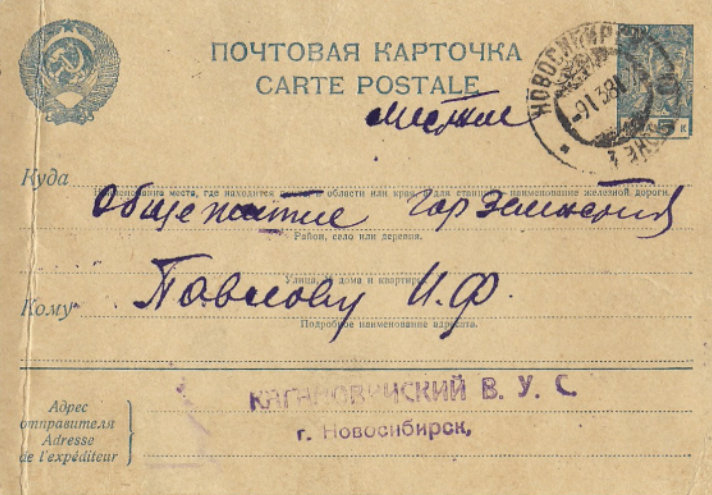 ПОЧТОВАЯ КАРТОЧКА
CARTE POSTALE
НОВОСИБИРСК
-9138
местное
Куда
Наименование места, где находится почта, и области или края, а для станции - наименование железной дороги.
Общежитие
Район, село или деревня.
Улица, № дома и квартиры.
Кому
Павлову И.Ф.
Подробное наименование адресата.
КАГАНОВИЧСКИЙ В. У. С.
г. Новосибирск,
Адрес
отправителя
Adresse
de l'expéditeur